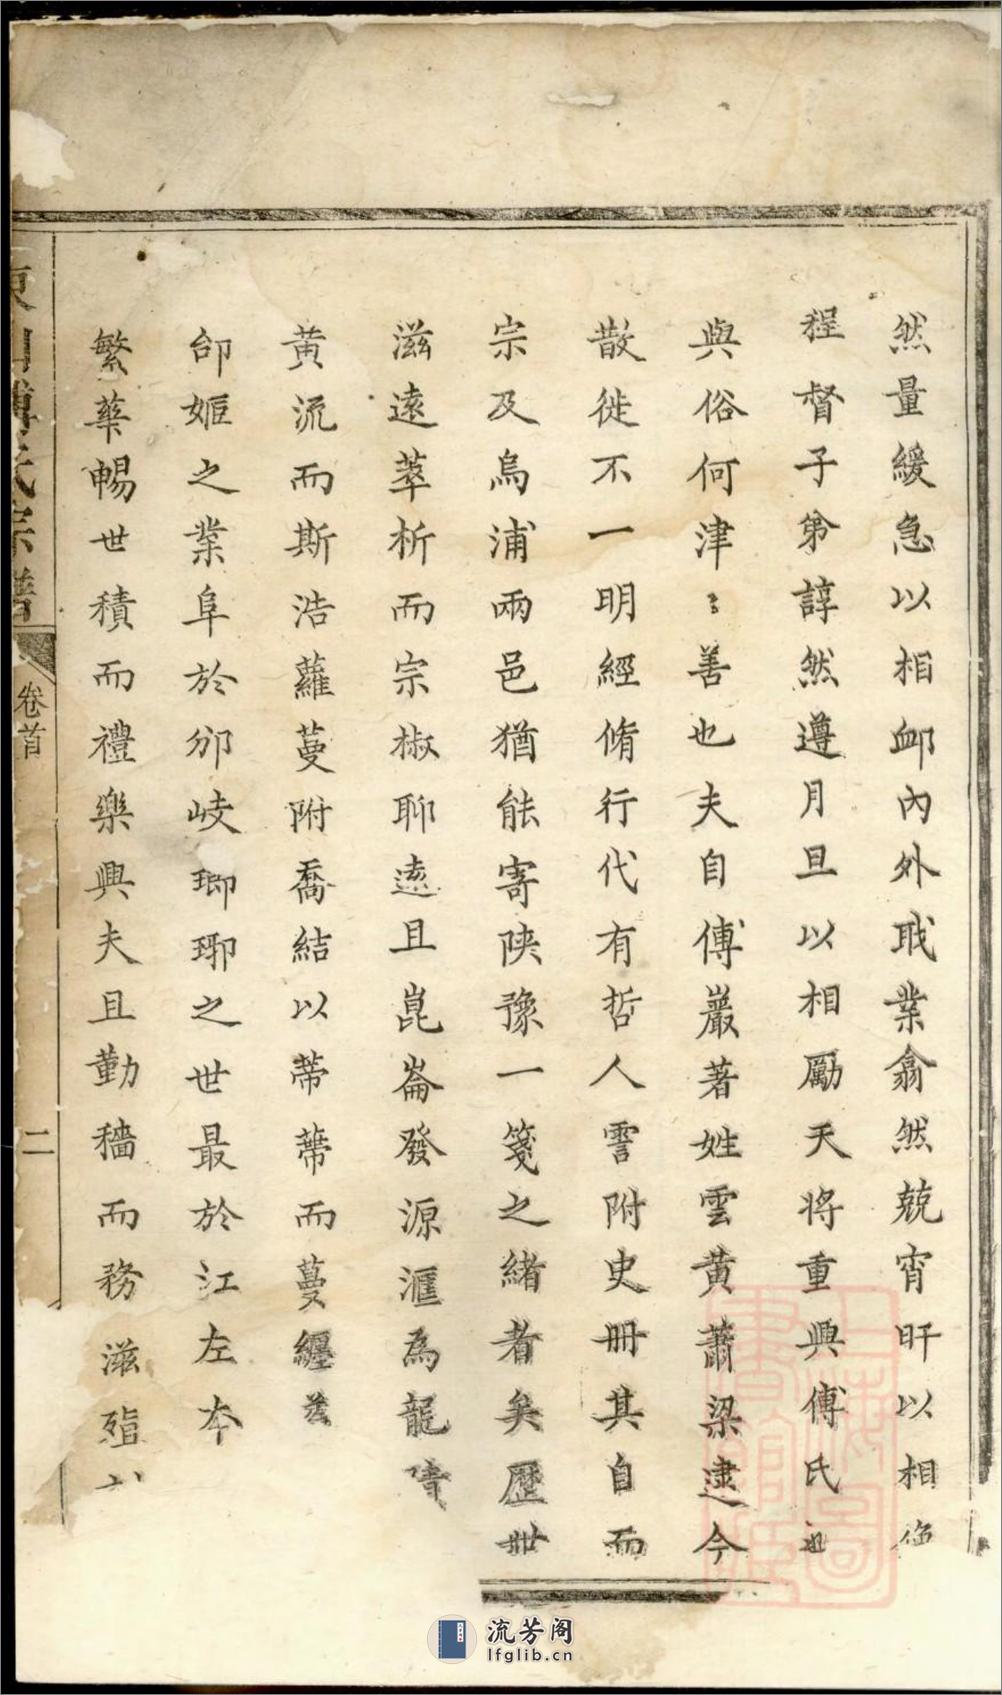 然量緩急以相卹內外戢業翕然兢宵旰以相
程督子弟諄然遵月旦以相勵天将重興傅氏
與俗何津〻善也夫自傅巖著姓雲黄蕭梁逮今
散徙不一明經脩行代有哲人霅附史冊其自而
宗及烏浦兩邑猶能寄陕豫一箋之緒者矣歷世
滋遠萃析而宗椒聊逺且崑崙發源滙為龍
黄流而斯浩蘿蔓附喬結以蒂蒂而蔓纒
邰姬之業阜於邠岐瑯琊之世最於江左本
繁華暢世積而禮樂興夫且勤穡而務滋殖
傅氏宗譜
卷首
二
流芳阁
lfglib.cn